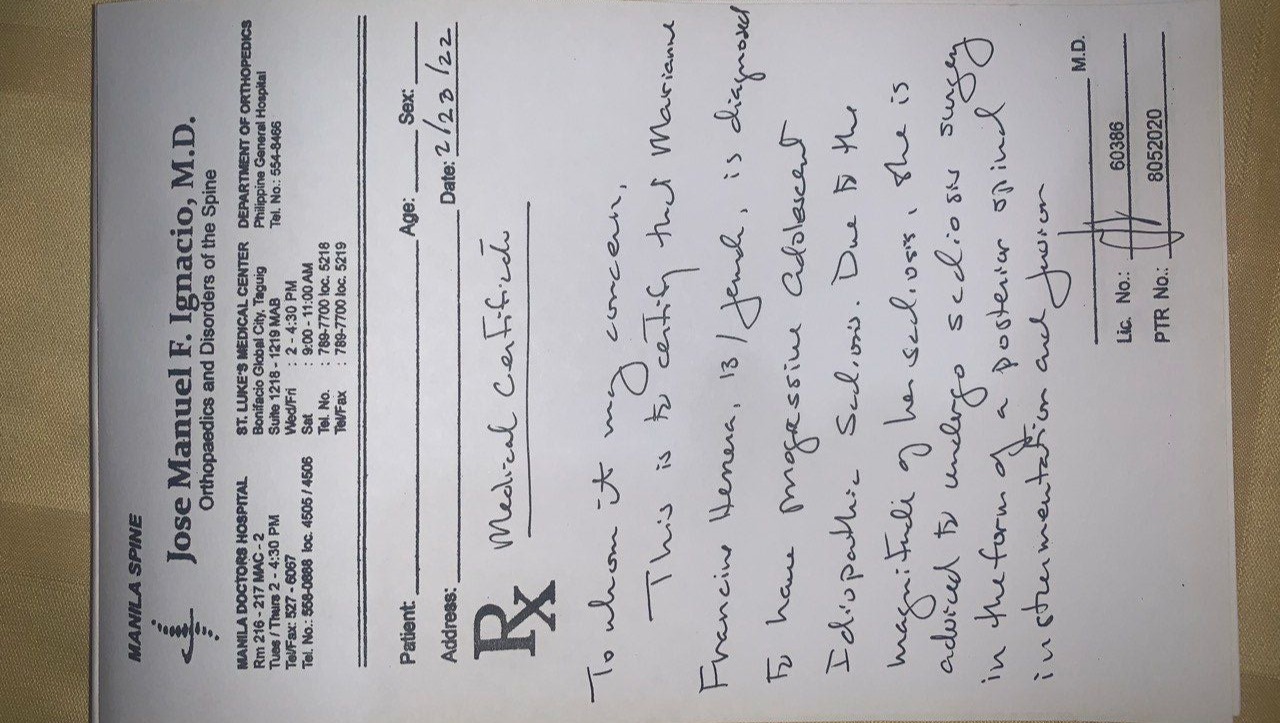 MANILA SPINE
Jose Manuel F. Ignacio, M.D.
Orthopaedics and Disorders of the Spine
MANILA DOCTORS HOSPITAL
Rm 216 - 217 MAC - 2
Tues / Thurs 2 - 4:30 PM
Tel/Fax: 527 - 6067
Tel. No.: 558-0888 loc. 4505 / 4506
ST. LUKE'S MEDICAL CENTER
Bonifacio Global City, Taguig
Suite 1218 - 1219 MAB
Wed/Fri : 2 - 4:30 PM
Sat : 9:00 - 11:00 AM
Tel. No. : 789-7700 loc. 5218
Tel/Fax : 789-7700 loc. 5219
DEPARTMENT OF ORTHOPEDICS
Philippine General Hospital
Tel. No.: 554-8466
Patient: Age: Sex:
Address: Date: 2/23/22
Rx Medical Certificate
To whom it may concern,
This is to certify that Marianne
Francine Herrera, 13/female, is diagnosed
to have progressive Adolescent
Idiopathic Scoliosis. Due to the
magnitude of her scoliosis, she is
advised to undergo scoliosis surgery
in the form of a posterior spinal
instrumentation and fusion
M.D.
Lic. No.: 60386
PTR No.: 8052020